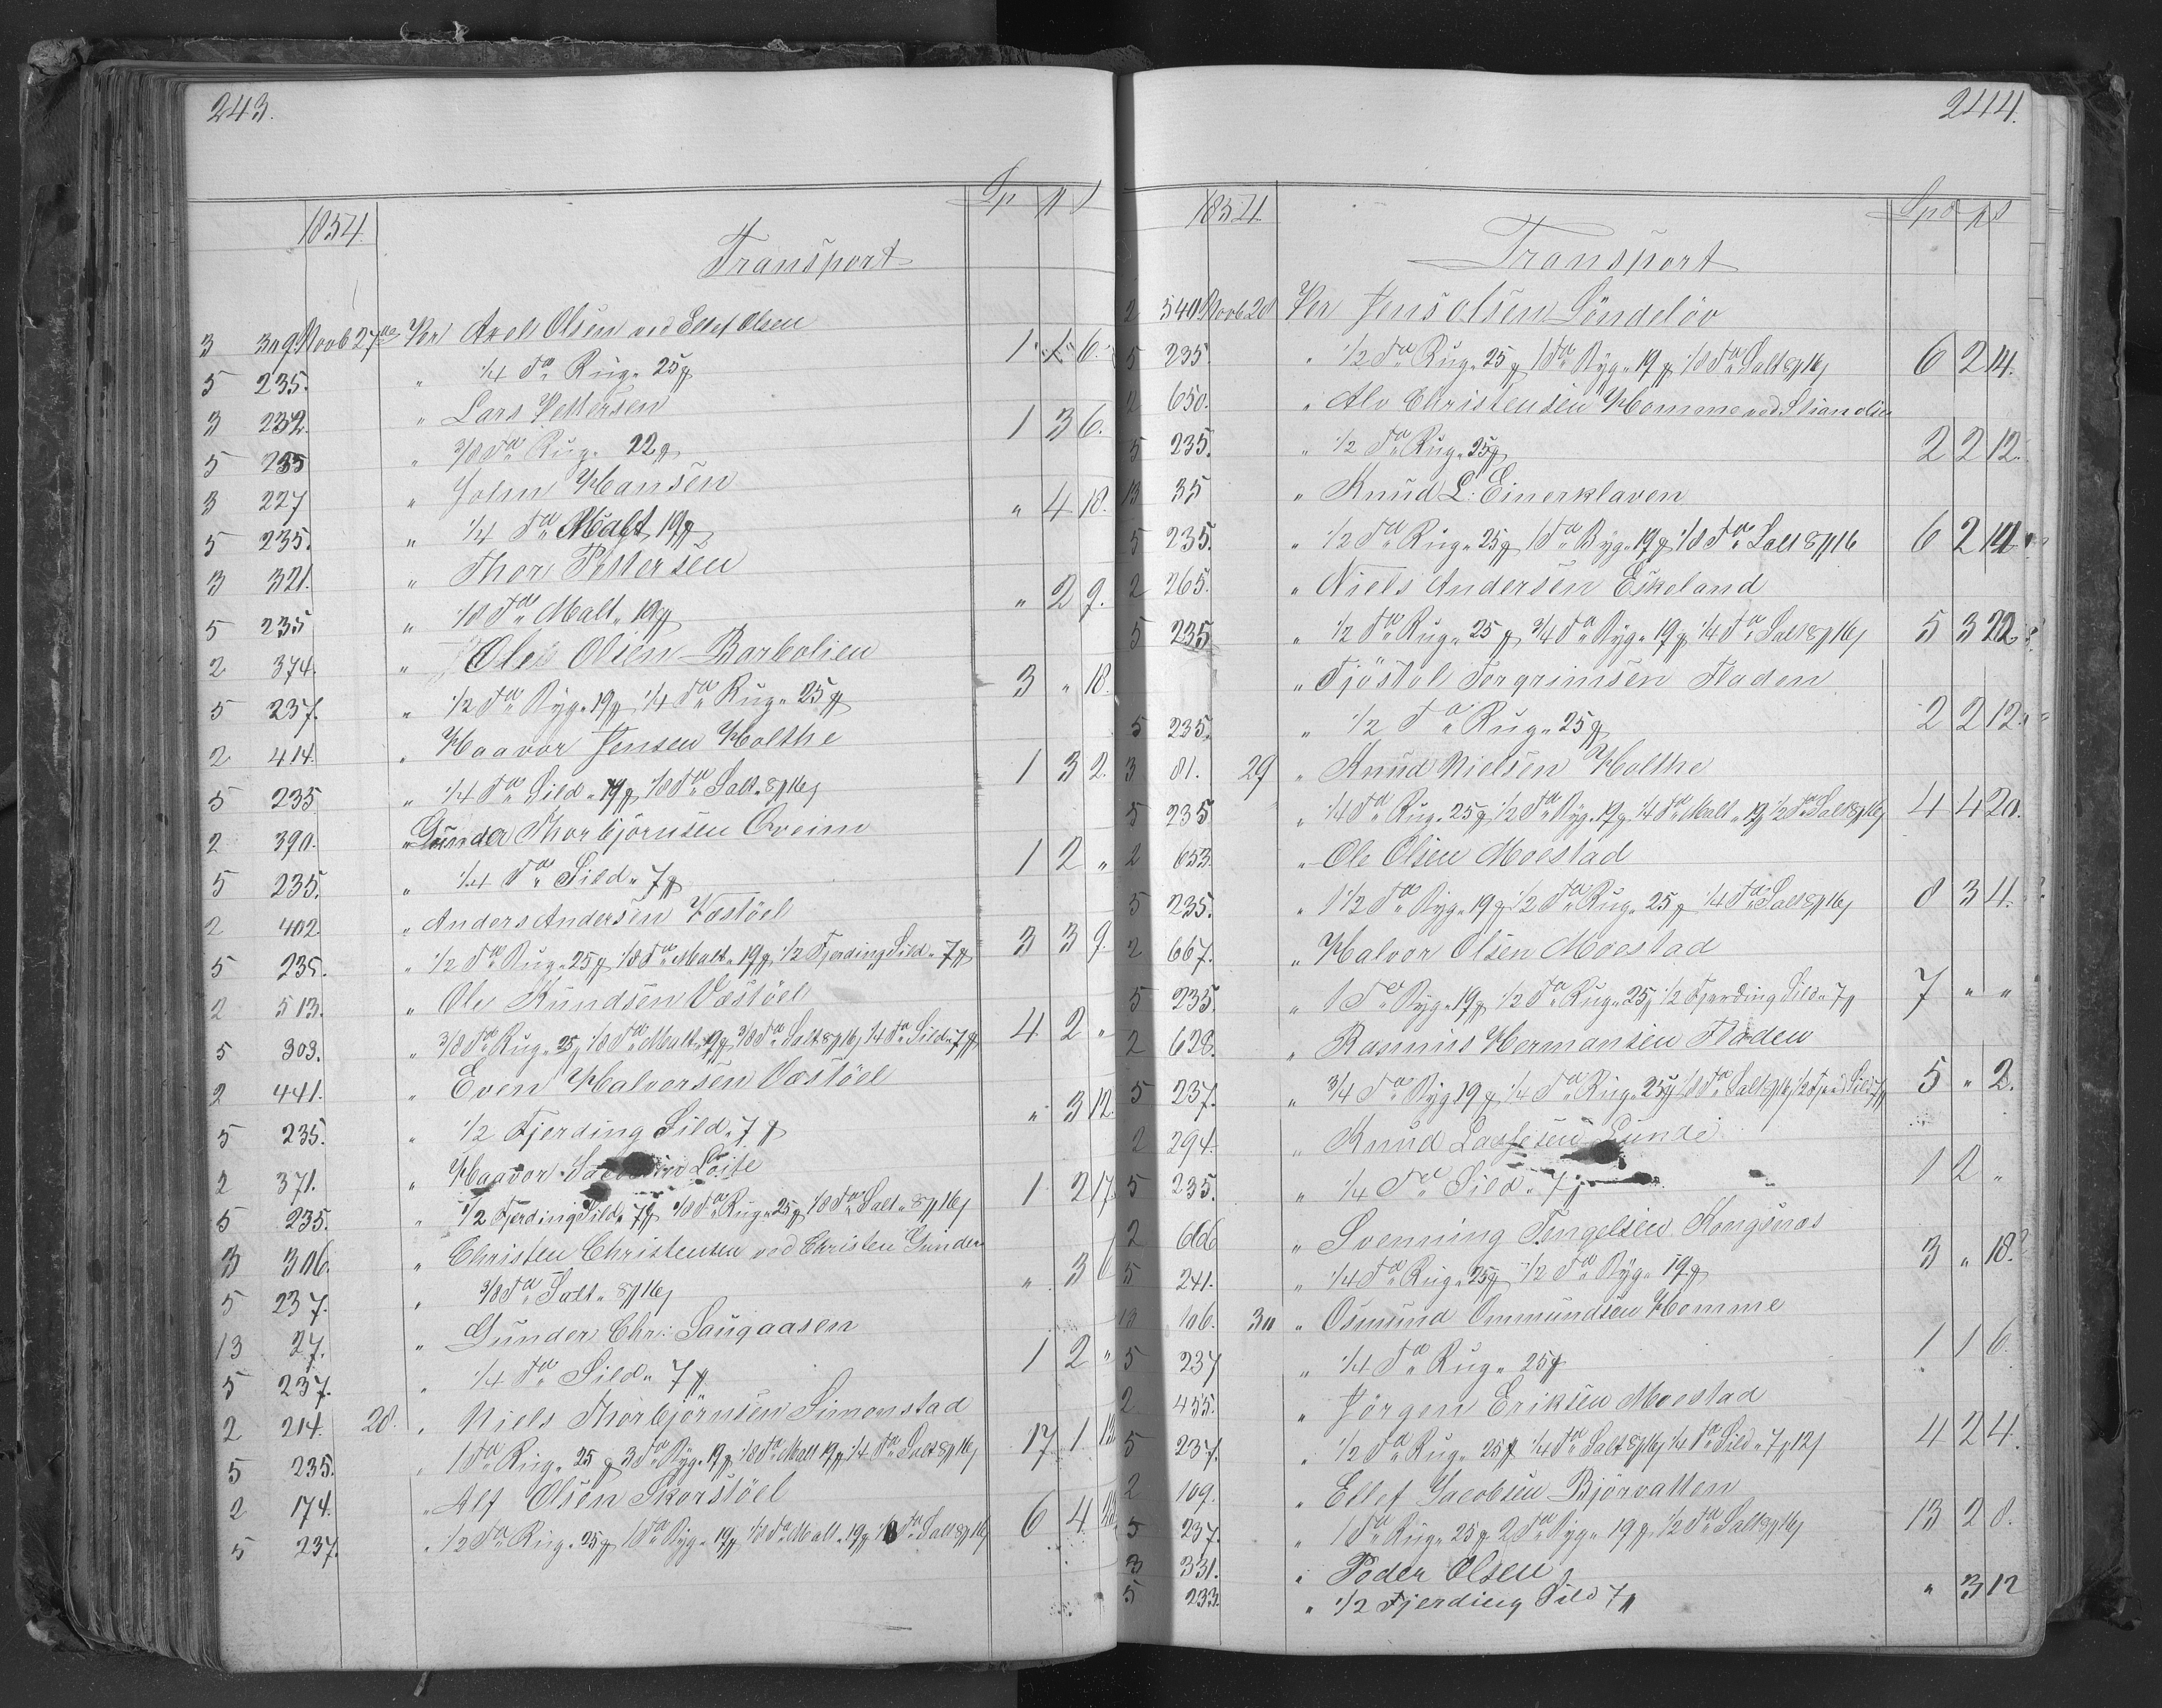 243.
1854. Sp # ß
Transport
3 309 Novb 27de Per Axel Olsen ved Ellef Olsen
5 235. " 1/4 Tde Rug " 25 # 1 1 6.
3 232. " Lars Pettersen
5 235 " 3/8 Tde Rug " 22 # 1 3 6.
3 227 " John Hansen
5 235. " 1/4 Tde Malt 19 # " 4 18.
3 321. " Thor Pettersen
5 235 " 1/8 Tde Malt " 19 # " 2 9.
2 374. " Ole Olsen Barbolien
5 237. " 1/2 Tde Byg " 19 # 1/4 Tde Rug " 25 # 3 " 18.
2 414. " Haavor Jensen Holthe
5 235 " 1/4 Tde Sild " 19 # 1/8 Tde Salt " 8 # 16 ß 1 3 2.
2 390. " Gunder Thorbjørnsen Oveim
5 235. " 1/4 Tde Sild " 7 # 1 2 "
2 402 " Anders Andersen Væstöel
5 235. " 1/2 Tde Rug " 25 # 1/8 Tde Malt " 19 # 1/2 Fjerding Sild " 7 # 3 3 9.
2 513. " Ole Knudsen Væstöel
5 303. " 3/8 Tde Rug " 25 # 1/8 Tde Malt " 19 # 3/8 Tde Salt 8 # 16 ß 1/4 Tde Sild " 7 # 4 2 "
2 441. " Even Halvorsen Væstöel
5 235. " 1/2 Fjerding Sild " 7 # " 3 12.
2 371. " Haavor Løite
5 235. " 1/2 Fjerding Sild " 7 # 1/8 Tde Rug " 25 # 1/8 Tde Salt " 8 # 16 ß 1 2 17
3 306. " Christen Christensen ved Christen Gunder
5 237. " 3/8 Tde Salt " 8 # 16 ß " 3 6
13 27. " Gunder Chr: Saugaasen
5 237. " 1/4 Tde Sild " 7 # 1 2 "
2 214. 28. " Niels Thorbjørnsen Simonstad
5 235. " 1 Tde Rug " 25 # 3 Tde Byg " 19 # 1/8 Tde Malt 19 # 1/4 Tde Salt 8 # 16 ß 17 1
2 174. " Alf Olsen Skorstöel
5 237. " 1/2 Tde Rug " 25 # 1 Tde Byg " 19 # 1/8 Tde Malt " 19 # 1/8 Tde Salt 8 # 16 ß 6 4
244.
1854. Spd # ß
Transport
2 540 Novb 28 Per Jens Olsen Söndelöv
5 235. " 1/2 Tde Rug " 25 # 1 Tde Byg " 19 # 1/8 Tde Salt 8 # 16 ß 6 2 14.
2 650. " Alv Christensen Homme ved Stian Olsen
5 235. " 1/2 Tde Rug " 25 # 2 2 12.
13 35 " Knud L: Einerklaven
5 235. " 1/2 Tde Rug " 25 # 1 Tde Byg " 19 # 1/8 Tde Salt 8 # 16 6 2 14
2 265. " Niels Andersen Eskeland
5 235 " 1/2 Tde Rug " 25 # 3/4 Tde Byg " 19 # 1/4 Tde Salt 8 # 16 ß 5 3 22
" Tjöstol Torgrimsen Fladen
5 235. " 1/2 Tde Rug " 25 # 2 2 12.
3 81. 29 " Knud Nielsen Holthe
5 235 " 1/4 Tde Rug " 25 # 1/2 Tde Byg " 19 # 1/4 Tde Malt " 19 # 1/2 Tde Salt 8 # 16 ß 4 4 20.
2 653. " Ole Olsen Moestad
5 235. " 1 1/2 Tde Byg " 19 # 1/2 Tde Rug " 25 # 1/4 Tde Salt 8 # 16 ß 8 3 4.
2 667. " Halvor Olsen Moestad
5 235. " 1 Tde Byg " 19 # 1/2 Tde Rug " 25 # 1/2 Fjerding Sild " 7 # 7 " "
2 628. " Rasmus Hermansen Fladen
5 237. " 3/4 Tde Byg 19 # 1/4 Tde Rug " 25 # 1/8 Tde Salt 8 # 16 ß 1/2 Fjerd Sild 7 # 5 " 2.
2 294. " Knud Lassesen Lunde
5 235. " 1/4 Tde Sild " 7 # 1 2 "
2 666 " Svenning Tengelsen Kongsnæs
5 241. " 1/4 Tde Rug " 25 # 1/2 Tde Byg " 19 # 3 " 18.
13 106. 30 " Osmund Ommundsen Homme
5 237 " 1/4 Tde Rug " 25 # 1 1 6.
2 455. " Jörgen Eriksen Moestad
5 237. " 1/2 Tde Rug " 25 # 1/4 Tde Salt 8 # 16 ß 1/4 Tde Sild " 7 # 12 ß 4 2 4.
2 109. " Ellef Jacobsen Bjørvatten
5 237. " 1 Tde Rug " 25 # 2 Tde Byg " 19 # 1/2 Tde Salt 8 # 16 ß 13 2 8.
3 331. " Peder Olsen
5 233 " 1/2 Fjerding Sild 7 # " 3 12